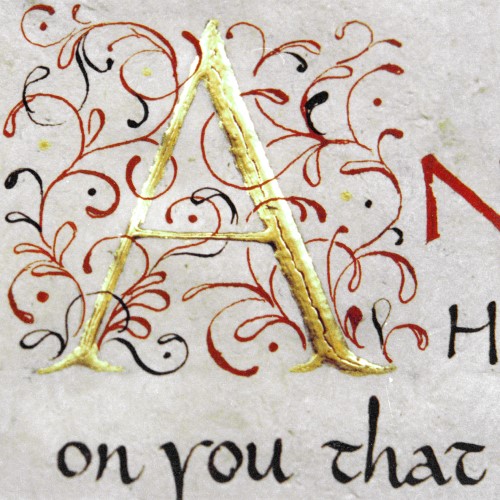 A
H
on you that